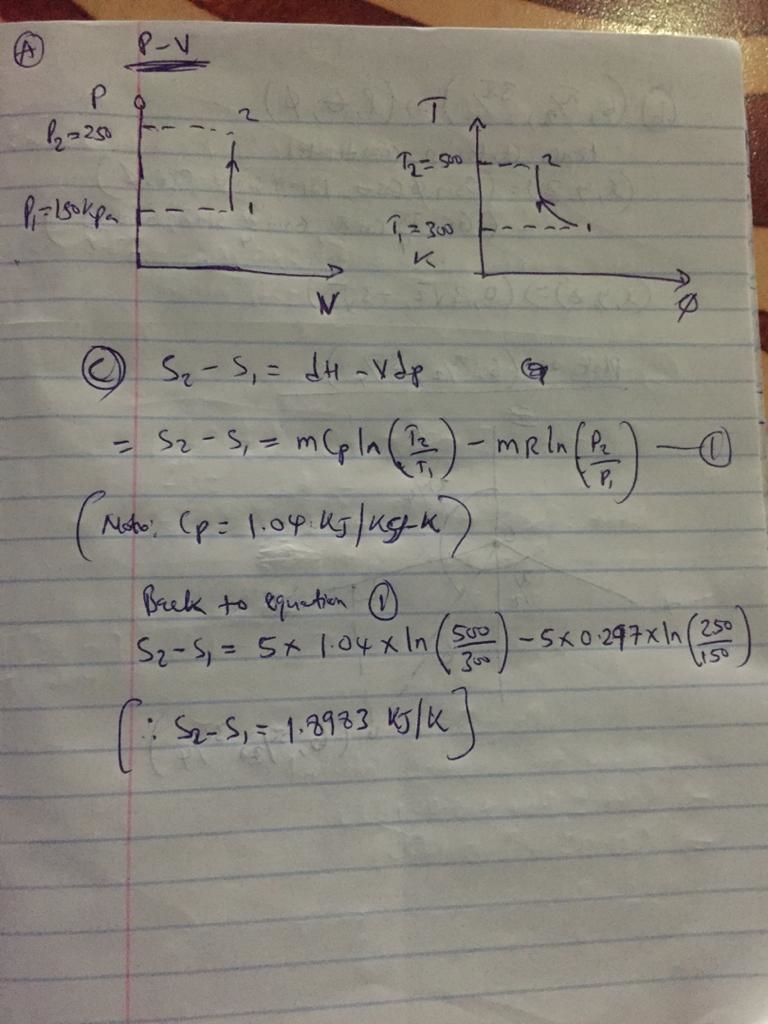 A
P-V
P
P₂=250
2
P₁=150kpa
1
V
T
T₂=500
2
T₁=300
K
1
Ø
C S₂ - S₁ = dH - Vdp
= S₂ - S₁ = mCp ln(T₂/T₁) - mR ln(P₂/P₁) — 1
(Note: Cp = 1.04 KJ/Kg-K)
Back to equation 1
S₂-S₁ = 5 x 1.04 x ln(500/300) - 5 x 0.297 x ln(250/150)
[∴ S₂-S₁ = 1.8983 KJ/K]